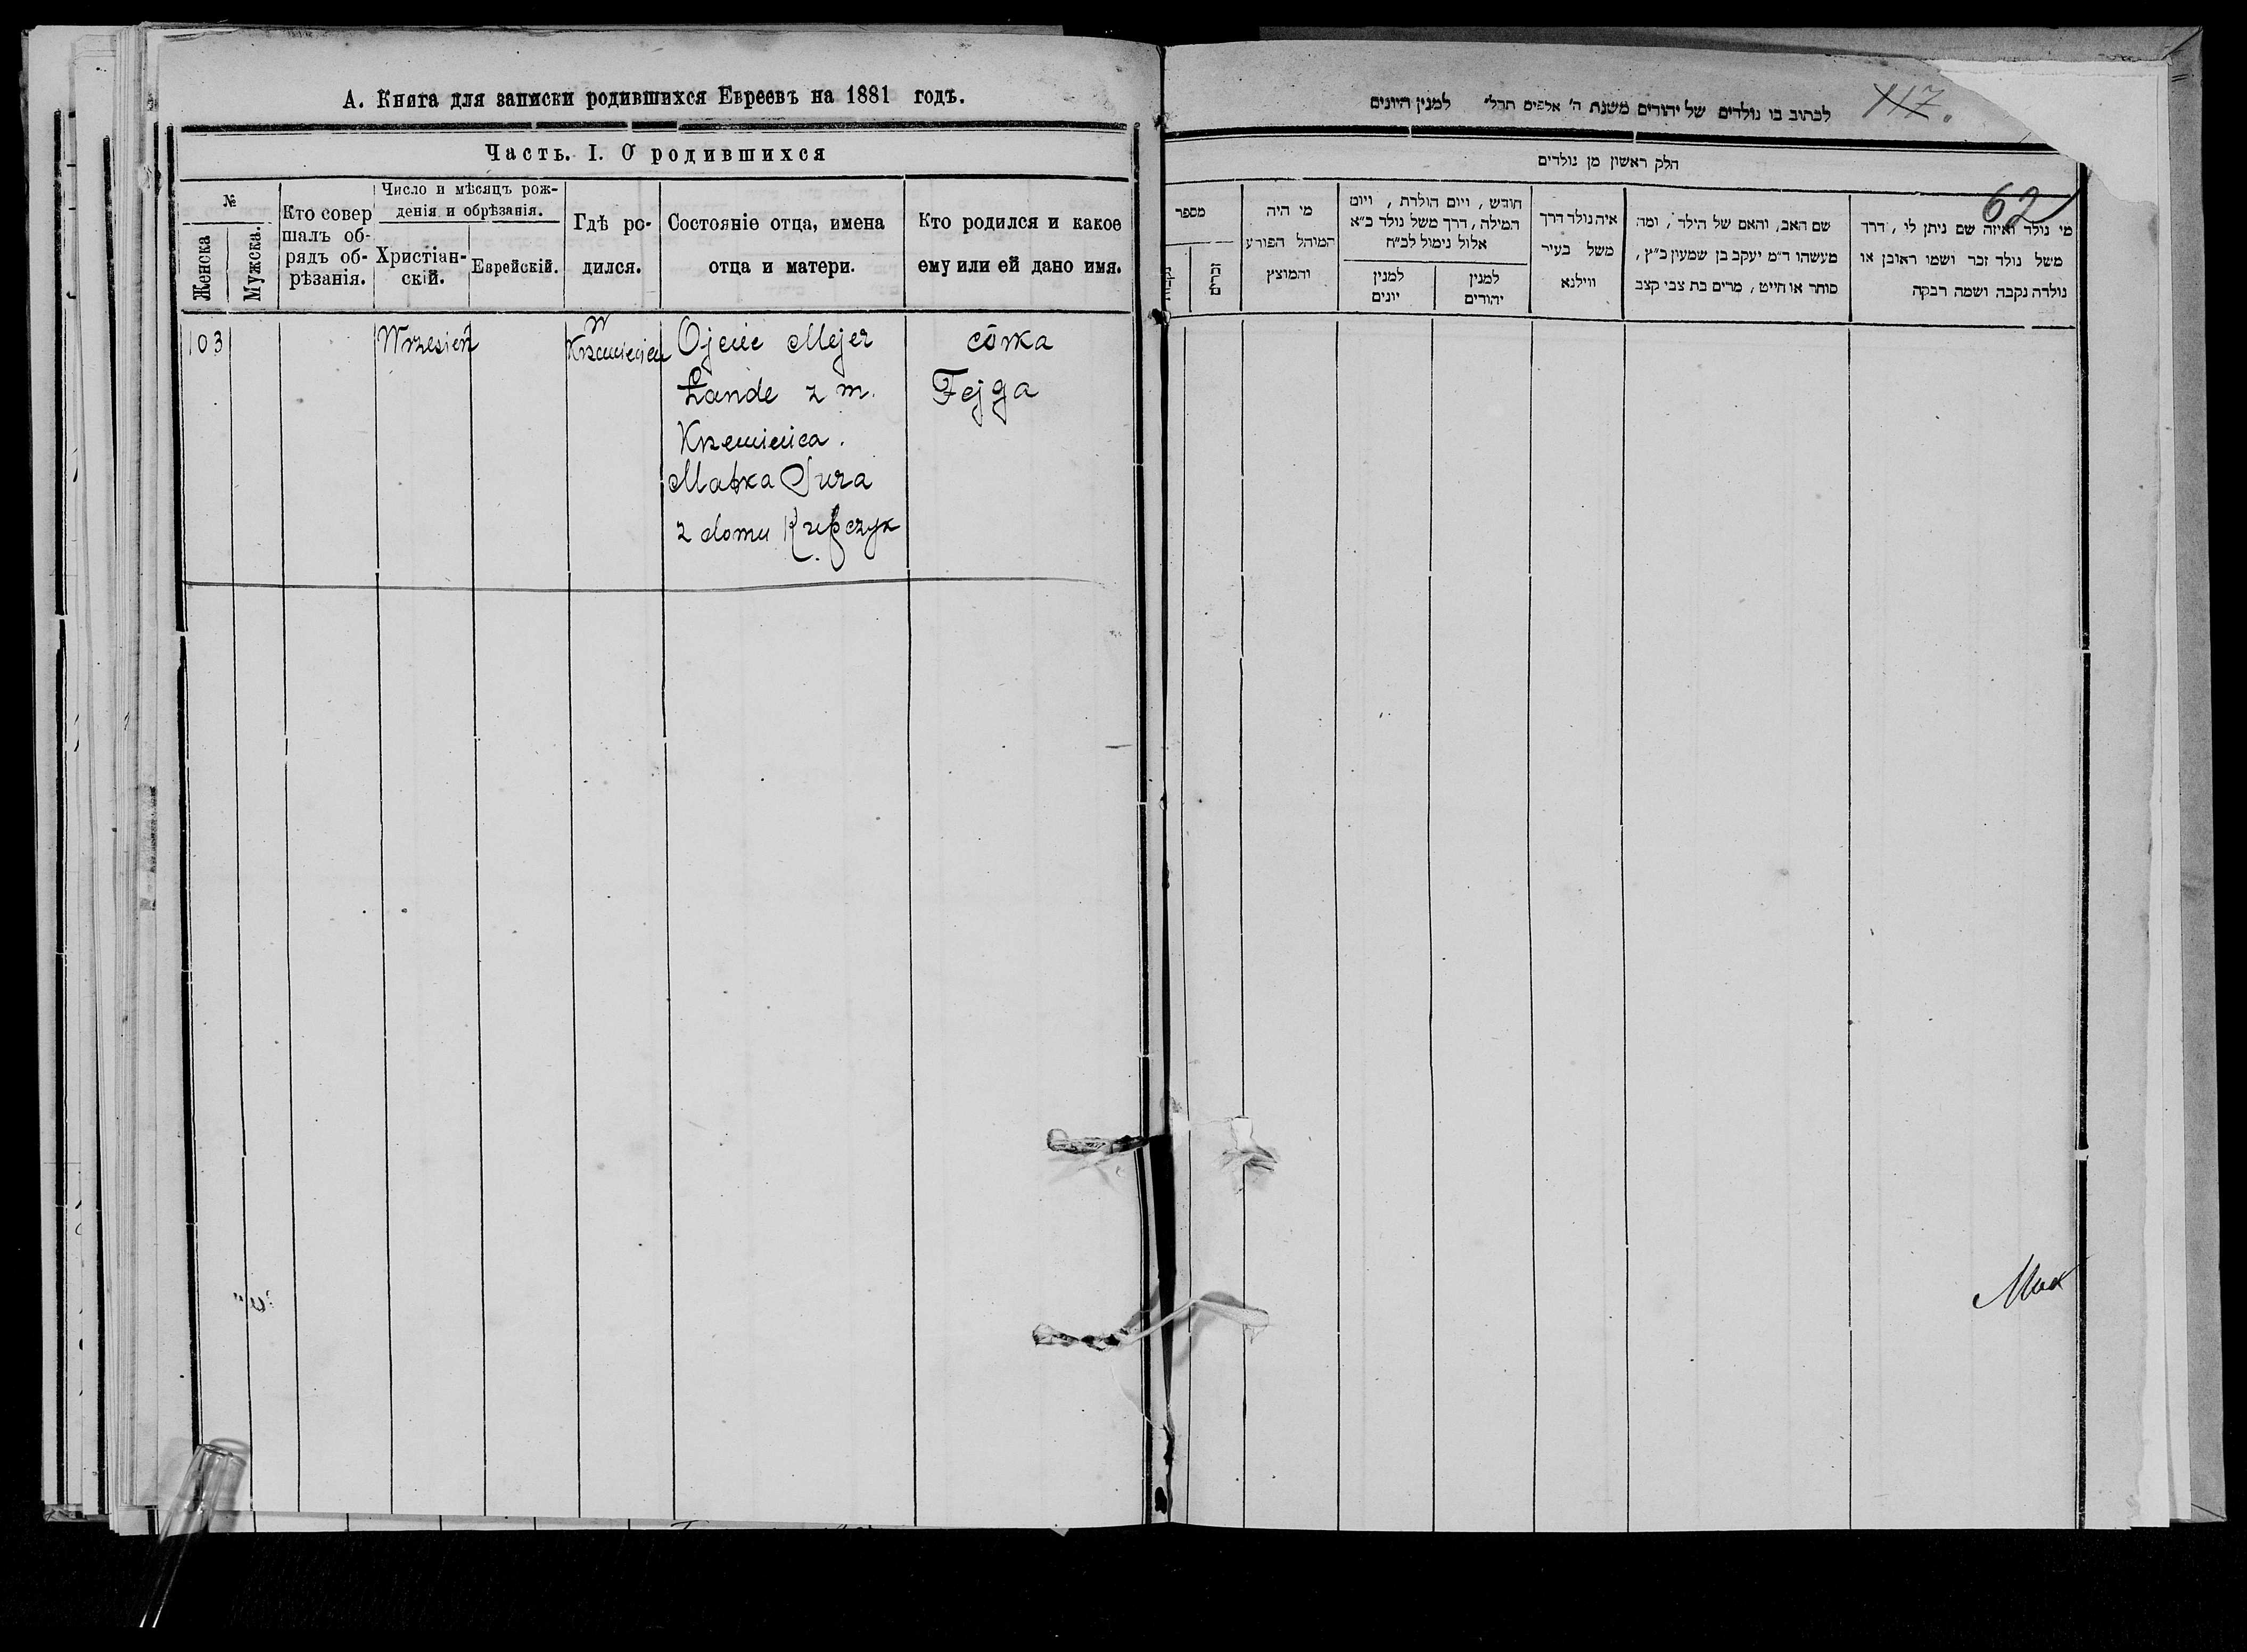 А. Книга для записки родившихся Евреевъ на 1881 годъ.
Часть. I. О родившихся
№
Женска
Мужска.
Кто совер
шалъ об-
рядъ об-
рѣзанія.
Число и мѣсяцъ рож-
денія и обрѣзанія.
Христіан-
скій.
Еврейскій.
Гдѣ ро-
дился.
Состояніе отца, имена
отца и матери.
Кто родился и какое
ему или ей дано имя.
103
Wrzesień
w
Krzemieńcu
Ojciec Mejer
Łande z m.
Krzemieńca.
Matka Sura
z domu Krupczyk
córka
Fejga
לכתוב בו נולדים של יהודים משנת ה' אלפים תרל" למנין היונים
117.
חלק ראשון מן נולדים
62
מספר
זכרים
מי היה
המוהל הפורע
והמוצץ
חודש, ויום הולדת, ויום
המילה, דרך משל נולד כ"א
אלול נימול לכ"ח
למנין
יונים
למנין
יהודים
איה נולד דרך
משל בעיר
ווילנא
שם האב, והאם של הילד, ומה
מעשהו ד"מ יעקב בן שמעון כ"ץ,
סוחר או חייט, מרים בת צבי קצב
מי נולד ואיזה שם ניתן לו, דרך
משל נולד זכר ושמו ראובן או
נולדה נקבה ושמה רבקה